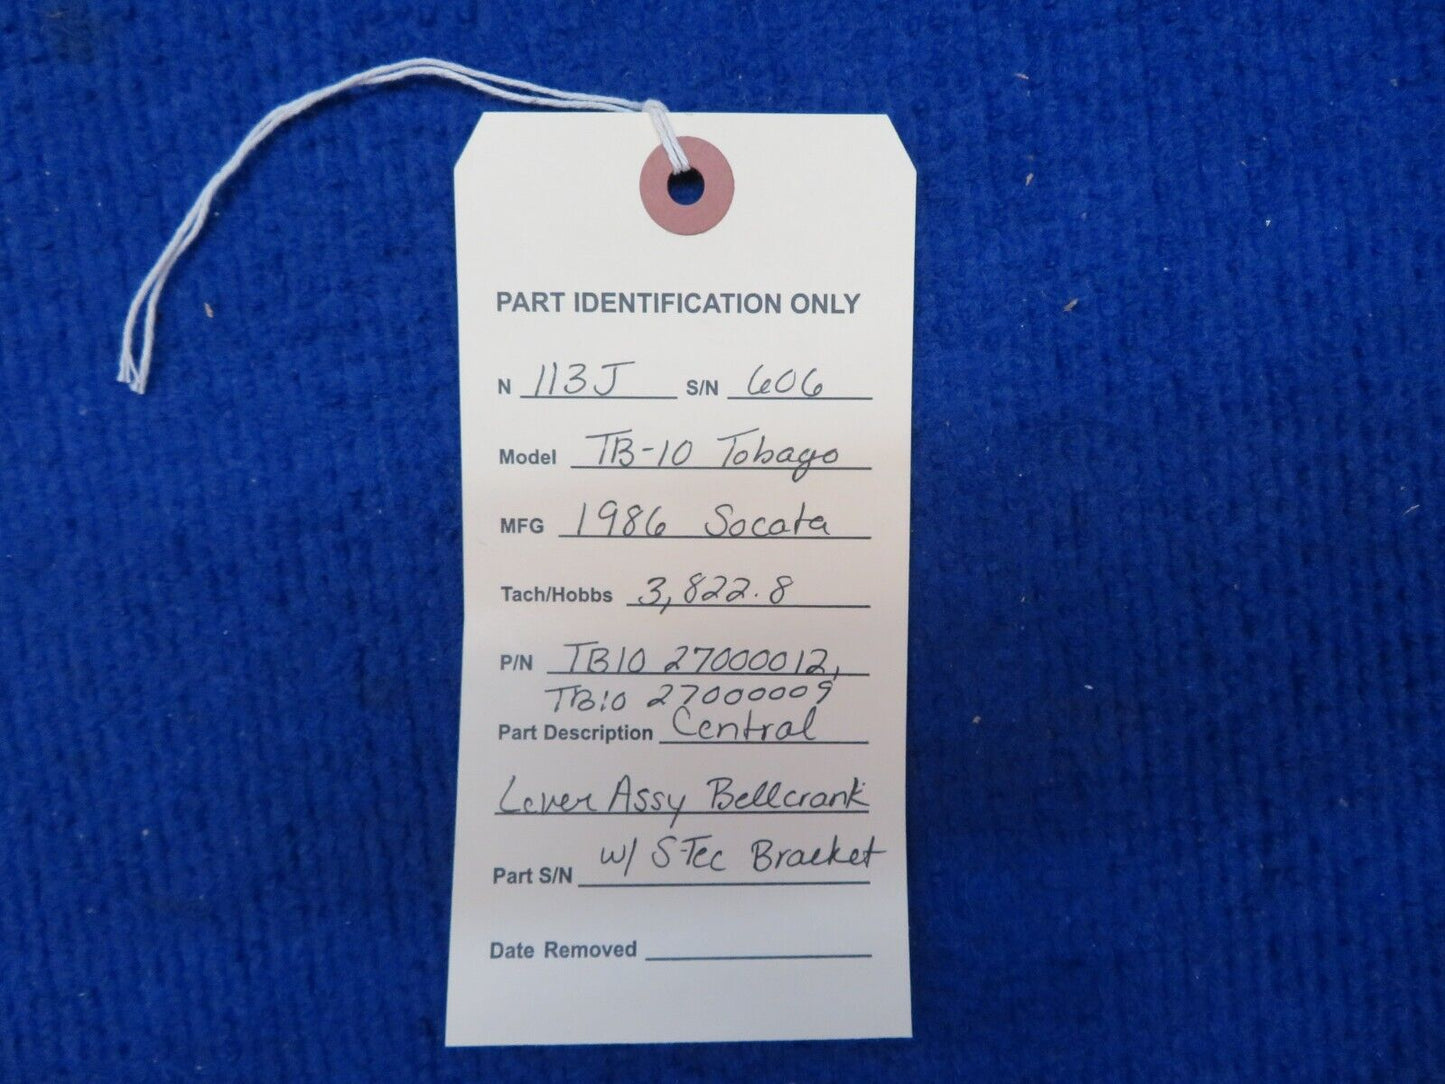 PART IDENTIFICATION ONLY
N 113J S/N 606
Model TB-10 Tobago
MFG 1986 Socata
Tach/Hobbs 3,822.8
P/N TB10 27000012,
TB10 27000009
Part Description Central
Lever Assy Bellcrank
w/ S-Tec Bracket
Part S/N
Date Removed